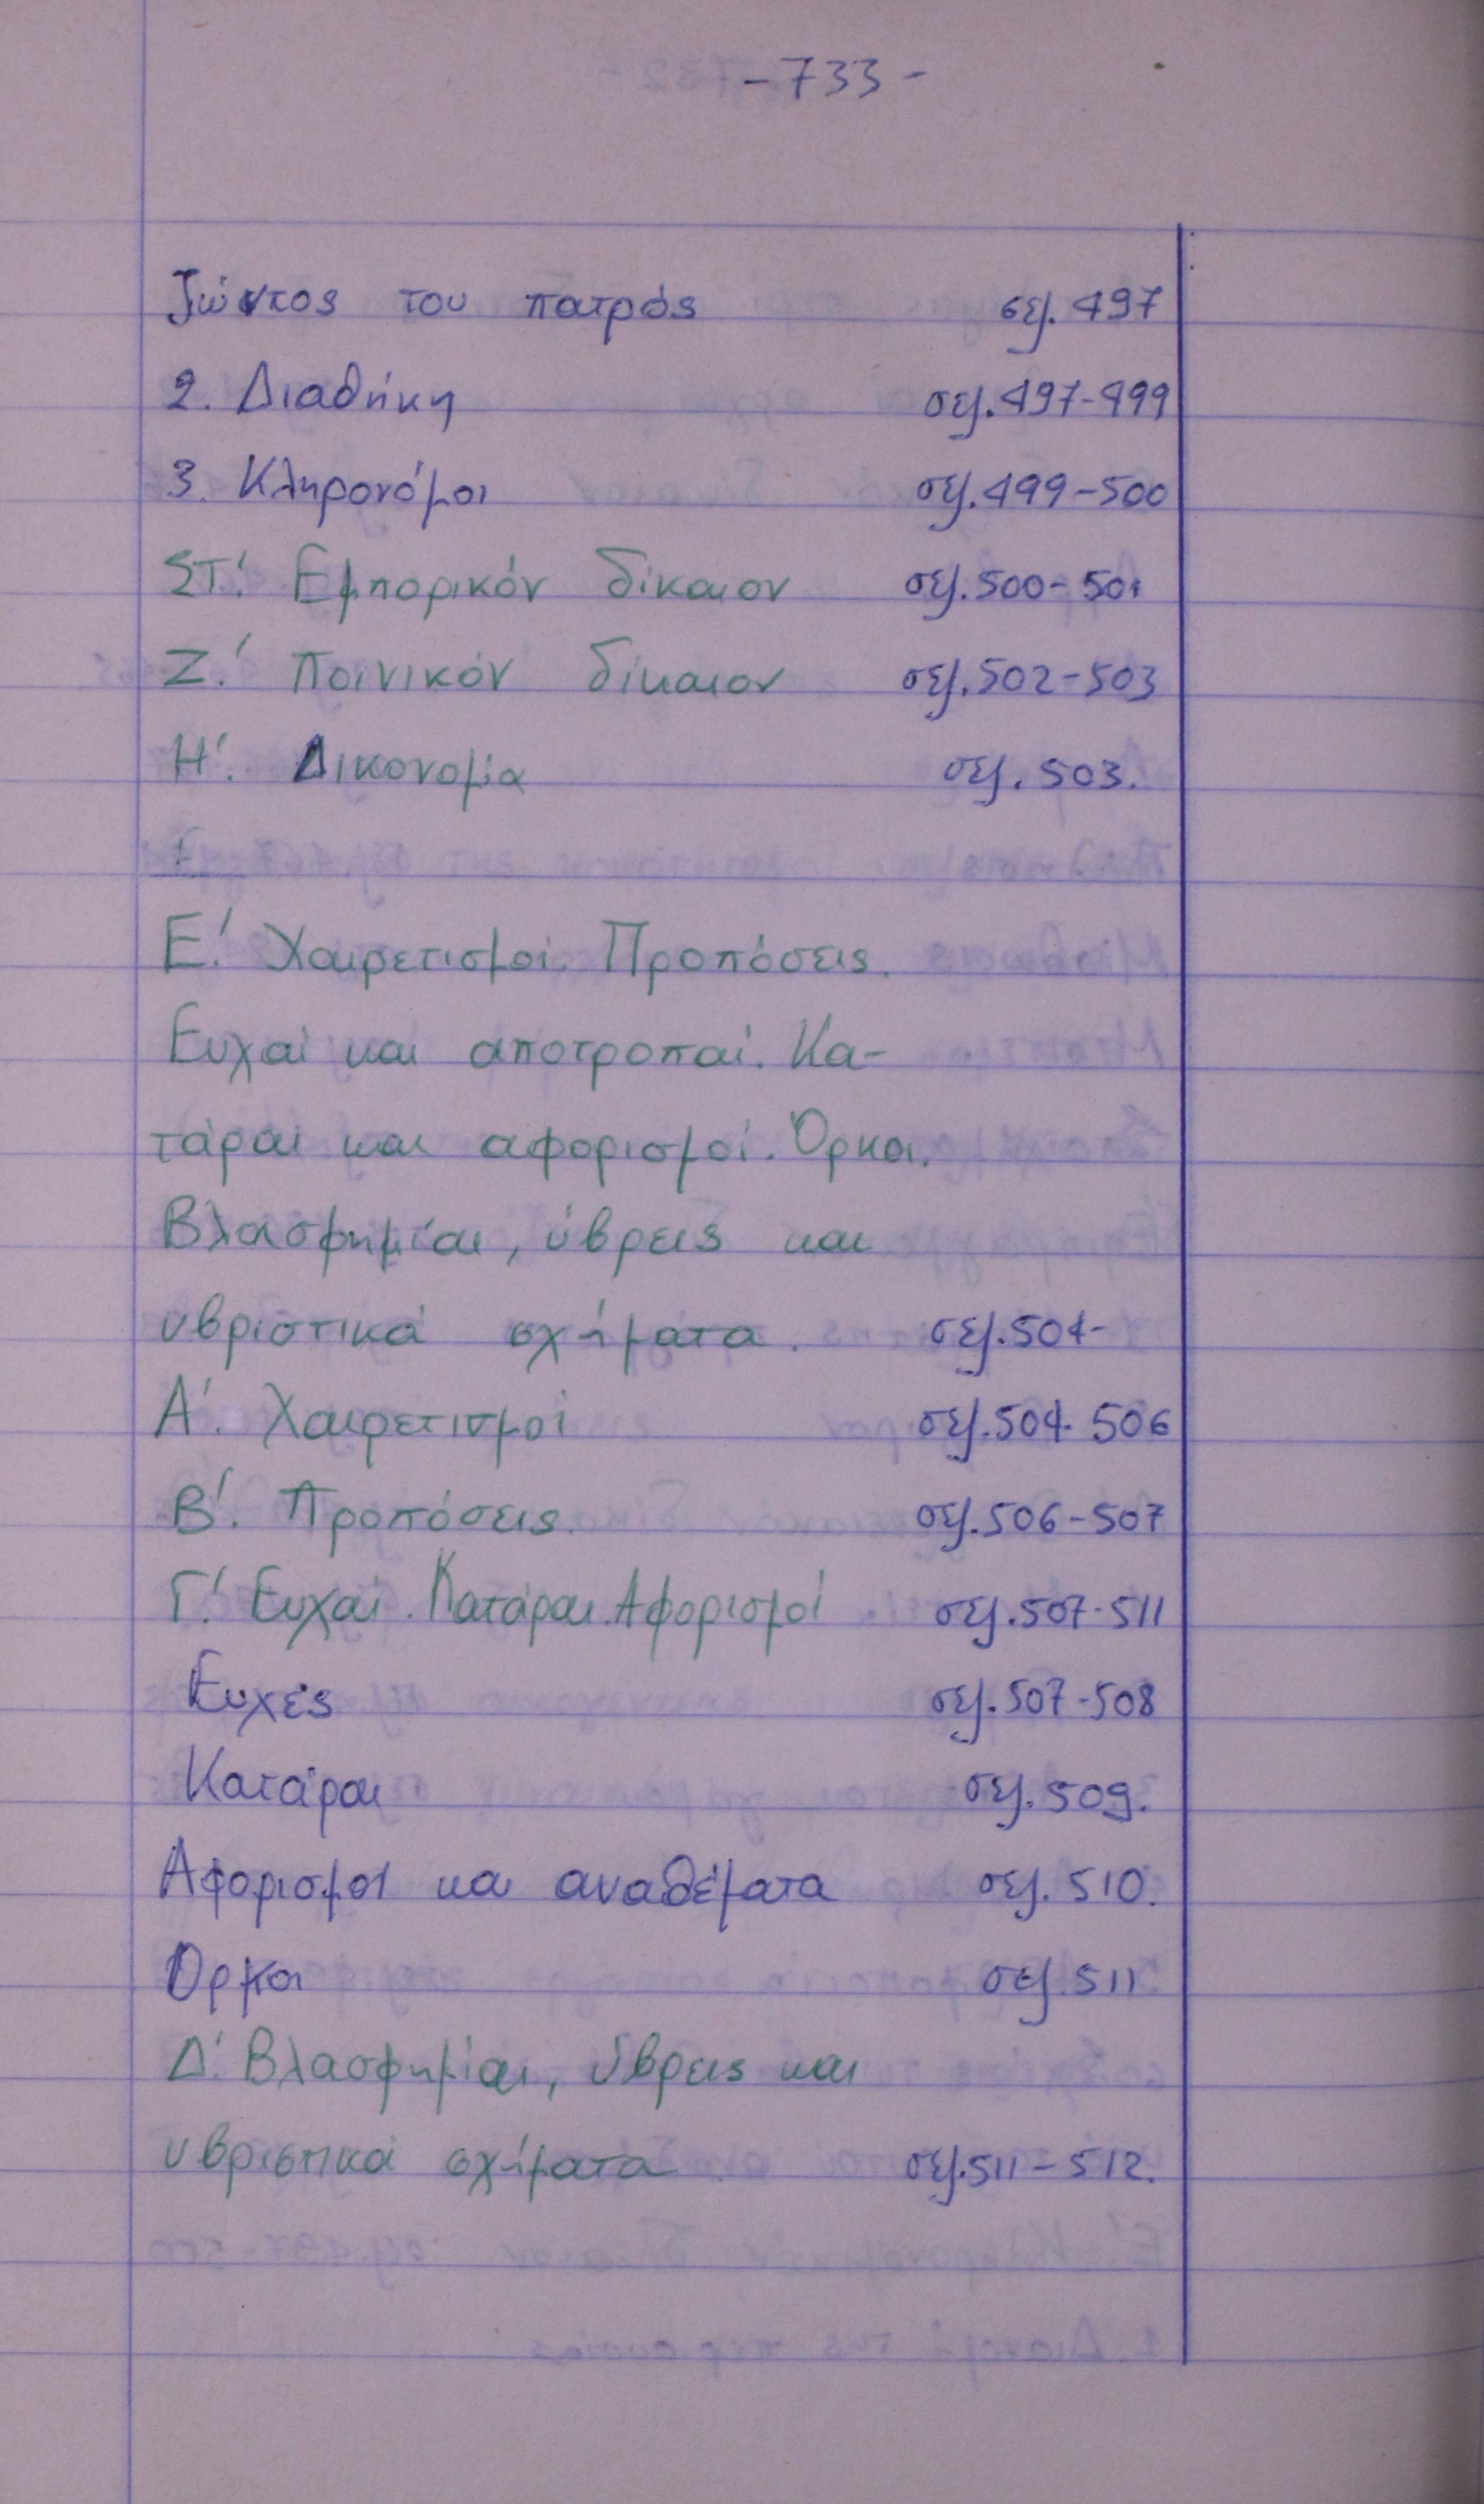 -733-
ζώντος του πατρός σελ. 497
2. Διαθήκη σελ. 497-499
3. Κληρονόμοι σελ. 499-500
ΣΤ΄. Εμπορικόν δίκαιον σελ. 500-501
Ζ΄. Ποινικόν δίκαιον σελ. 502-503
Η΄. Δικονομία σελ. 503.
Ε΄. Χαιρετισμοί. Προπόσεις.
Ευχαί και αποτροπαί. Κα-
τάραι και αφορισμοί. Όρκοι.
Βλασφημίαι, ύβρεις και
υβριστικά σχήματα. σελ. 504-
Α΄. Χαιρετισμοί σελ. 504-506
Β΄. Προπόσεις. σελ. 506-507
Γ΄. Ευχαί. Κατάραι. Αφορισμοί σελ. 507-511
Ευχές σελ. 507-508
Κατάραι σελ. 509.
Αφορισμοί και αναθέματα σελ. 510.
Όρκοι σελ. 511
Δ΄. Βλασφημίαι, ύβρεις και
υβριστικά σχήματα. σελ. 511-512.